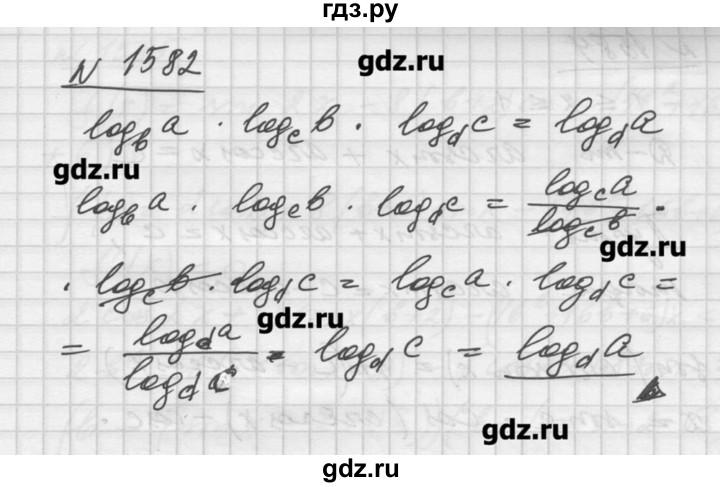 гдз.ру
N 1582
gdz.ru
log_b a · log_c b · log_d c = log_d a
gdz.ru
log_b a · log_c b · log_d c = log_c a / log_c b ·
gdz.ru
· log_c b · log_d c = log_c a · log_d c =
gdz.ru
= log_d a / log_d c · log_d c = log_d a
gdz.ru
gdz.ru